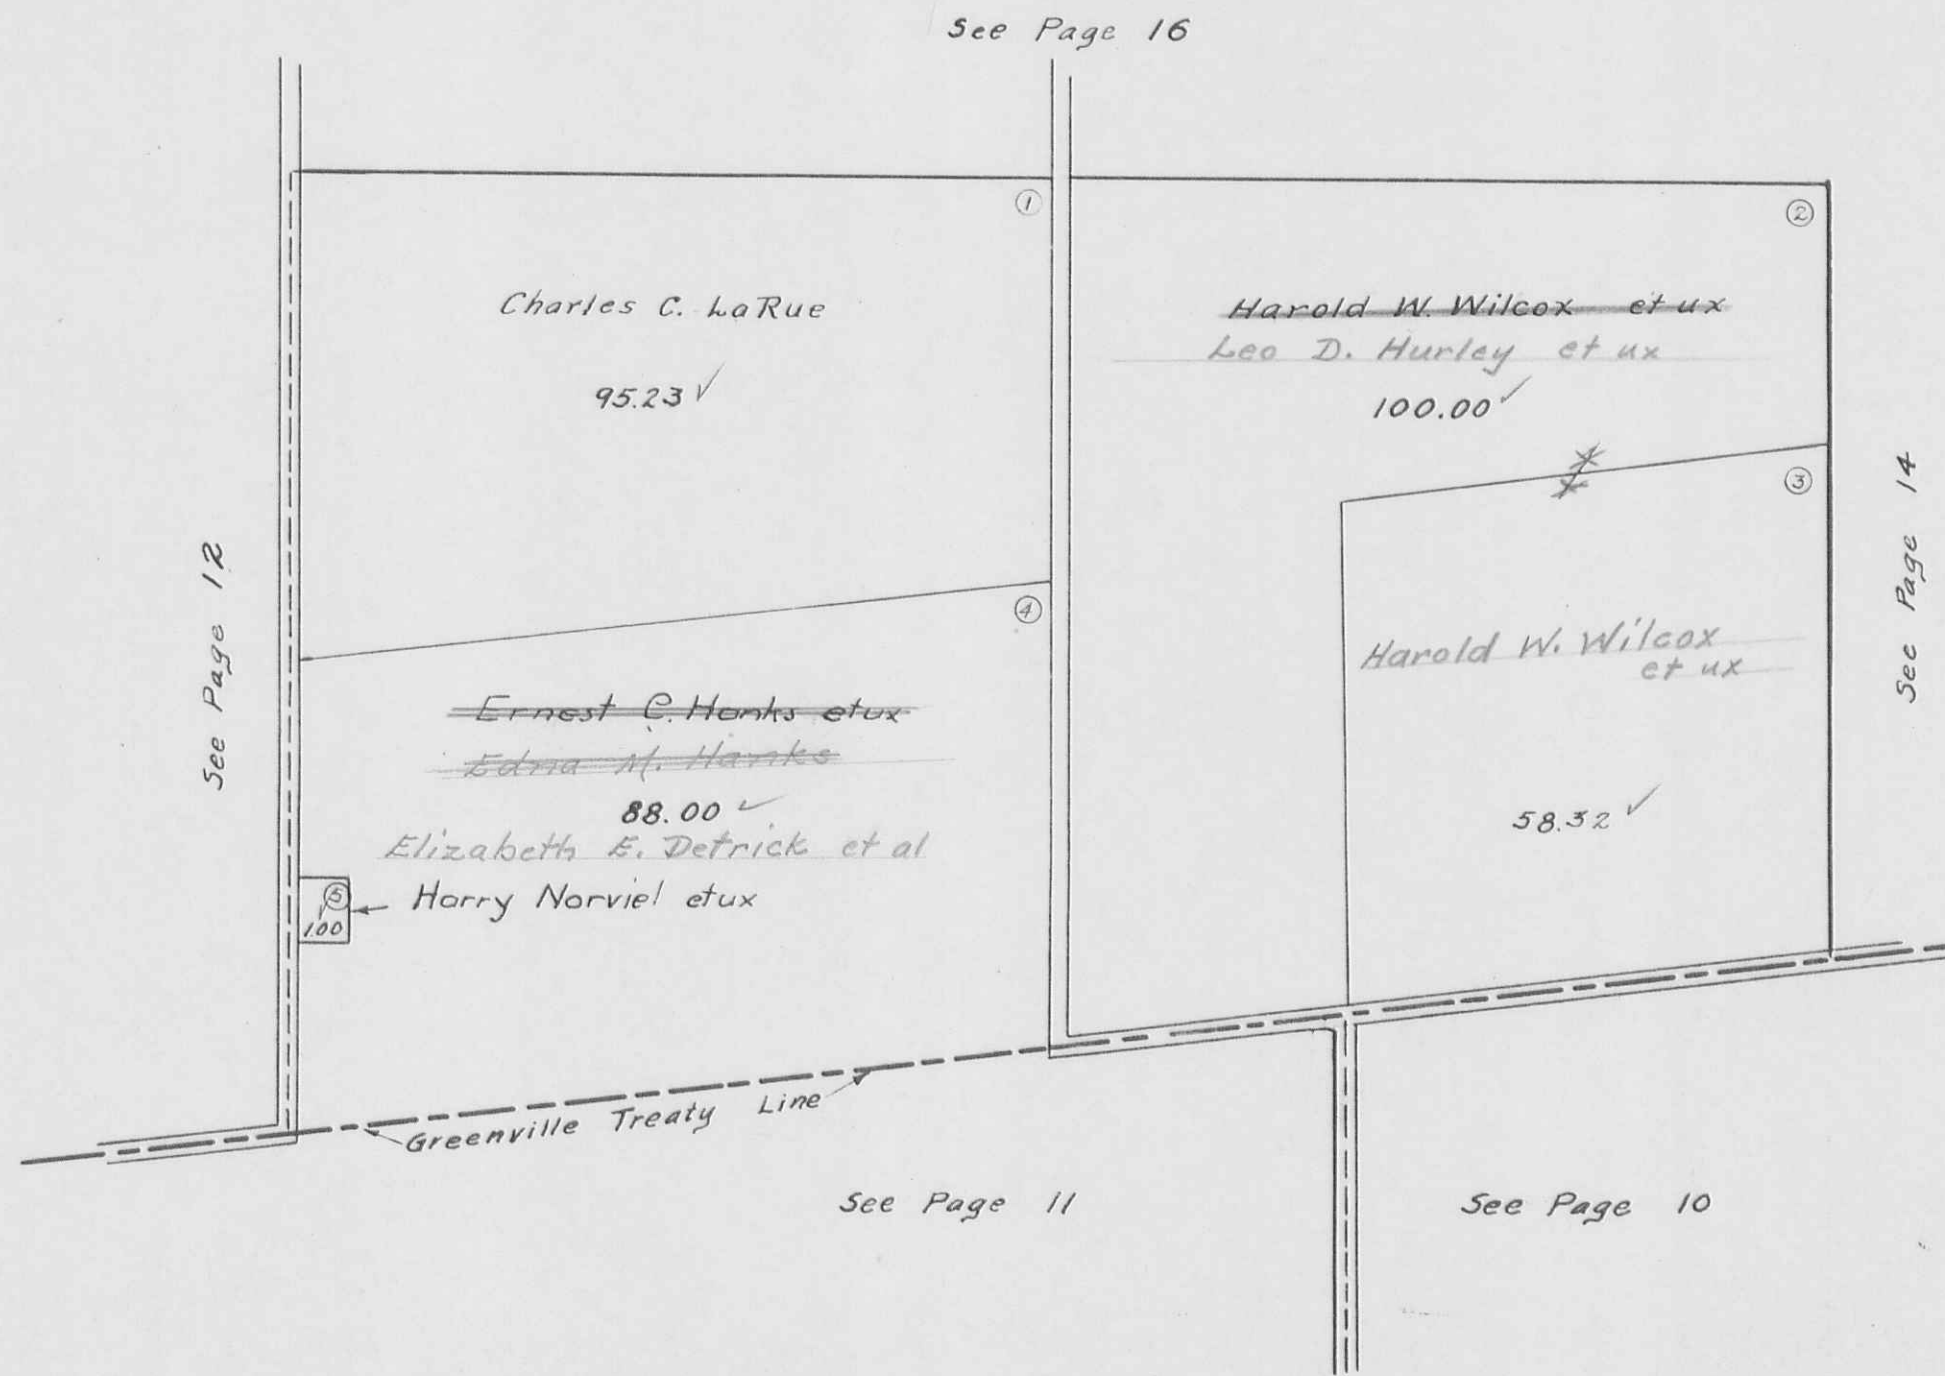 See Page 16
①
②
Charles C. LaRue
95.23 ✓
Harold W. Wilcox et ux
Leo D. Hurley et ux
100.00 ✓
③
See Page 12
See Page 14
④
Harold W. Wilcox
et ux
58.32 ✓
Ernest C. Hanks et ux
Edna M. Hanks
88.00 ✓
Elizabeth E. Detrick et al
⑤
1.00
Harry Norviel et ux
Greenville Treaty Line
See Page 11
See Page 10